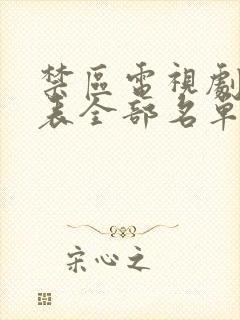 禁區電視劇
表全部名單
宋心之